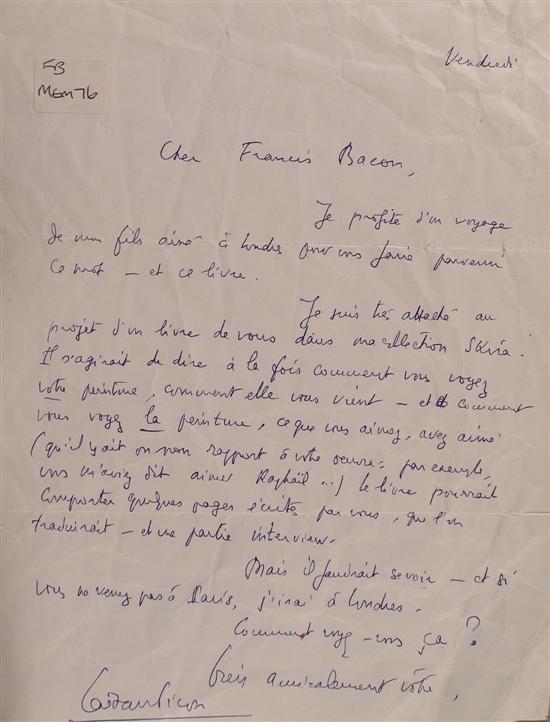 Vendredi
FB
MGM76
Cher Francis Bacon,
Je profite d'un voyage
de mon fils aîné à Londres pour vous faire parvenir
ce mot — et ce livre.
Je suis très attaché au
projet d'un livre de vous dans ma collection Skira.
Il s'agirait de dire à la fois comment vous voyez
votre peinture, comment elle vous vient — et comment
vous voyez la peinture, ce que vous aimez, avez aimé
(qu'il y ait ou non rapport à votre oeuvre: par exemple,
vous m'aviez dit aimer Raphaël ..) Le livre pourrait
comporter quelques pages écrites par vous, que l'on
traduirait — et une partie interview.
Mais il faudrait se voir — et si
vous ne venez pas à Paris, j'irai à Londres.
Comment voyez-vous ça ?
Bien amicalement vôtre,
Gaëtan Picon